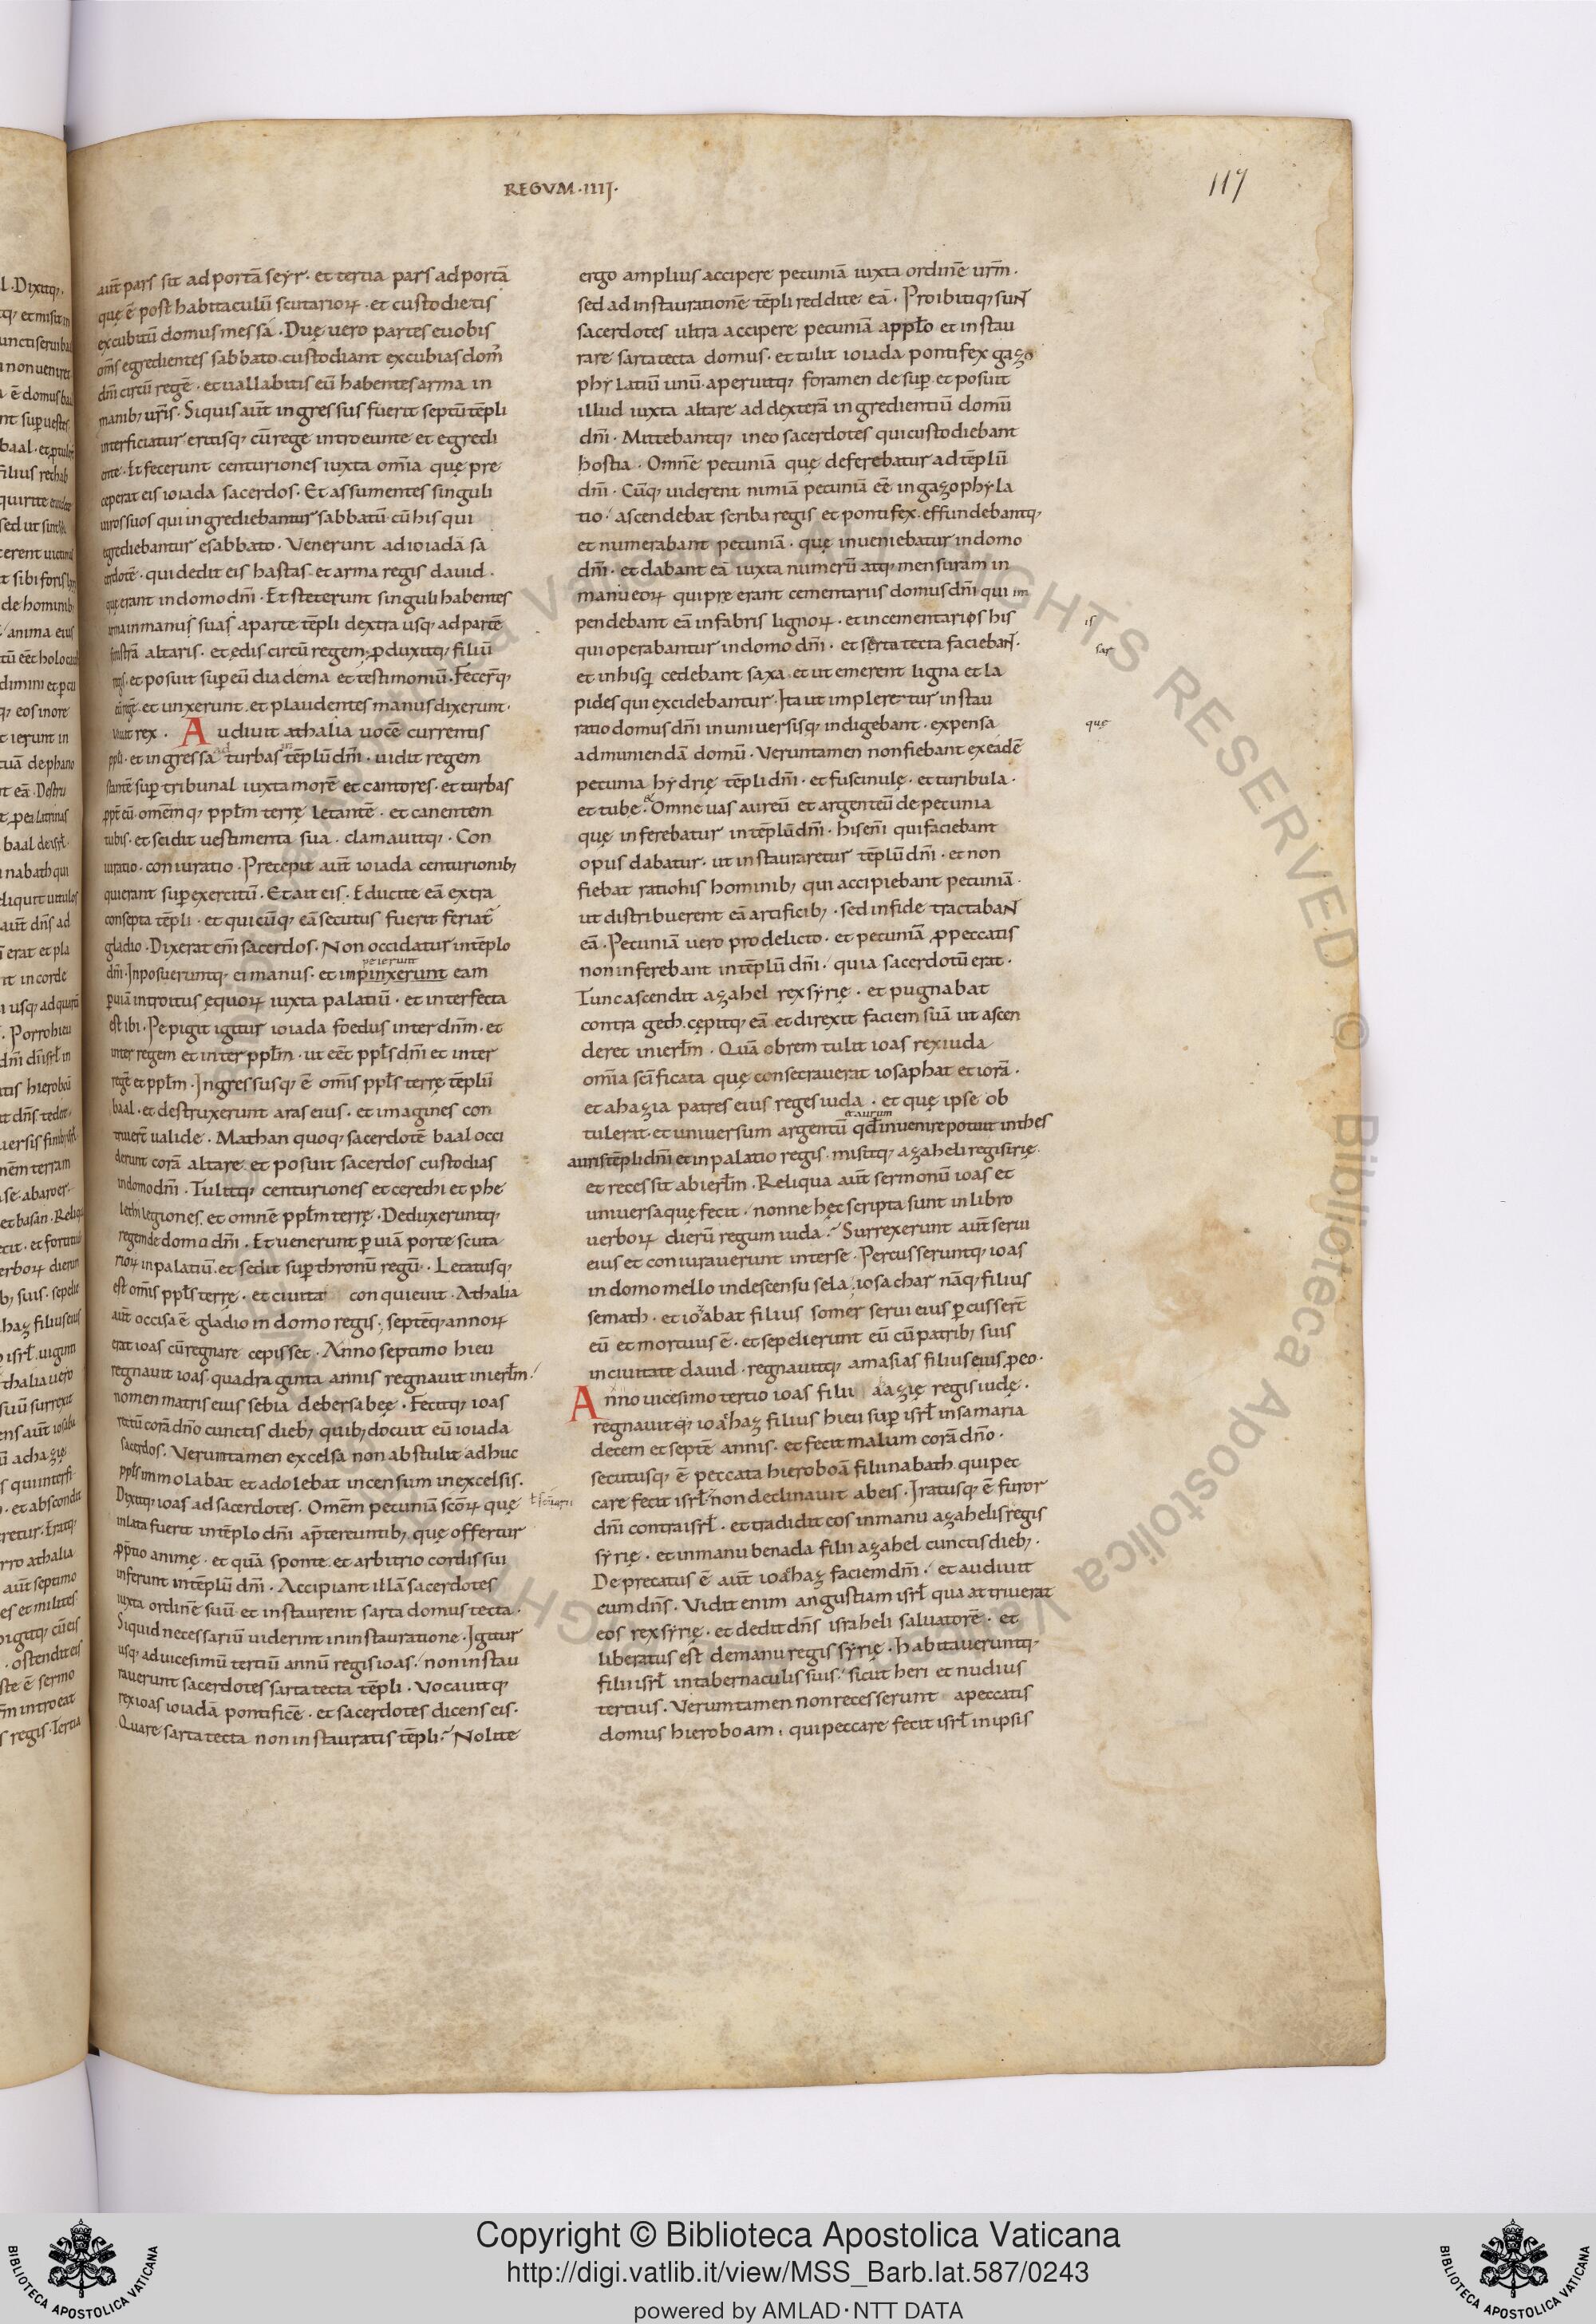 REGVM·IIIJ·
117
aut̄ pars sit ad portā seyr· et tertia pars ad portā
quę ē post habitaculū scutarioꝝ· et custodietis
excubitū domus messa· Duę uero partes e uobis
om̄s egredientes sabbato custodiant excubias dom̄
dn̄i circū regē· et uallabitis eū habentes arma in
manib; ur̄is· Siquis aut̄ ingressus fuerit septū tēpli
interficiatur eritisq; cū rege introeunte et egredi
ente· Et fecerunt centuriones iuxta om̄ia quę pre
ceperat eis ioiada sacerdos· Et assumentes singuli
uiros suos qui ingrediebantur sabbatū· cū his qui
egrediebantur e sabbato· Venerunt ad ioiadā sa
cerdotē· qui dedit eis hastas· et arma regis dauid·
quę erant in domo dn̄i· Et steterunt singuli habentes
arma in manus suas a parte tēpli dextra usq; ad partē
sinistrā altaris· et ędis circū regem· ꝓduxitq; filiū
regis· et posuit sup̄ eū diadema et testimoniū· Fecer̄q;
eū regē· et unxerunt· et plaudentes manus dixerunt·
Viuat rex· Audiuit athalia uocē currentis
ppli· et ingressa ad turbas in tēplū dn̄i· uidit regem
stantē sup̄ tribunal iuxta morē et cantores· et turbas
ꝓpe eū· omēmq; ppl̄m terrę letantē· et canentem
tubis· et scidit uestimenta sua· clamauitq;· Con
iuratio· coniuratio· Precepit aut̄ ioiada centurionib;
qui erant sup̄ exercitū· Et ait eis· Educite eā extra
consepta tēpli· et quicūq; eā secutus fuerit feriat̄
gladio· Dixerat em̄ sacerdos· Non occidatur in tēplo
peierunt
dn̄i· Inposueruntq; ei manus· et inpinxerunt eam
p̄ uiā introitus ęquoꝝ iuxta palatiū· et interfecta
est ibi· Pepigit igitur ioiada foedus inter dn̄m· et
inter regem et inter ppl̄m· ut eēt ppl̄s dn̄i et inter
regē et ppl̄m· Ingressusq; ē om̄is ppl̄s terrę tēplū
baal· et destruxerunt aras eius· et imagines con
triuer̄t ualide· Mathan quoq; sacerdotē baal occi
derunt corā altare· et posuit sacerdos custodias
in domo dn̄i· Tulitq; centuriones et cerethi et phe
lethi legiones· et omnē ppl̄m terrę· Deduxeruntq;
regem de domo dn̄i· Et uenerunt p̄ uiā porte scuta
rioꝝ in palatiū· et sedit sup̄ thronū regū· Letatusq;
est om̄is ppl̄s terrę· et ciuita conquieuit· Athalia
aut̄ occisa ē gladio in domo regis· septēq; annoꝝ
erat ioas cū regnare cepisset· Anno septimo hieu
regnauit ioas· quadraginta annis regnauit in ierl̄m·
nomen matris eius sebia de bersabeę· Fecitq; ioas
rectū corā dn̄o cunctis dieb; quib; docuit eū ioiada
sacerdos· Veruntamen excelsa non abstulit adhuc
ppl̄s immolabat et adolebat incensum in excelsis·
Dixitq; ioas ad sacerdotes· Omēm pecuniā sc̄oꝝ quę
inlata fuerit in tēplo dn̄i a p̄tereuntib; quę offertur
ꝓ p̄tio animę· et quā sponte et arbitrio cordis sui
inferunt in tēplū dn̄i· Accipiant illā sacerdotes
iuxta ordinē suū et instaurent sarta domus tecta·
Siquid necessariū uiderint in instauratione· Igitur
usq; ad uicesimū tertiū annū regis ioas· non instau
rauerunt sacerdotes sarta tecta tēpli· Vocauitq;
rex ioas ioiadā pontificē· et sacerdotes dicens eis·
Quare sarta tecta non instauratis tēpli· Nolite
ergo amplius accipere pecuniā iuxta ordinē ur̄m·
sed ad instaurationē tēpli reddite eā· Proibitiq; sun̄
sacerdotes ultra accipere pecuniā a ppl̄o et instau
rare sarta tecta domus· et tulit ioiada pontifex gazo
phylatiū unū· aperuitq; foramen desup̄ et posuit
illud iuxta altare ad dexterā ingredientiū domū
dn̄i· Mittebantq; in eo sacerdotes qui custodiebant
hostia· Omnē pecuniā quę deferebatur ad tēplū
dn̄i· Cūq; uiderent nimiā pecuniā eē in gazophyla
tio· ascendebat scriba regis et pontifex· effundebantq;
et numerabant pecuniā· quę inueniebatur in domo
dn̄i· et dabant eā iuxta numerū atq; mensuram in
manu eoꝝ qui pre erant cementariis domus dn̄i qui im
pendebant eā in fabris lignoꝝ· et in cementarios his
is
qui operabantur in domo dn̄i· et serta tecta facieban̄·
sar
et in hisq; cedebant saxa· et ut emerent ligna et la
pides qui excidebantur· Ita ut impleretur instau
ratio domus dn̄i in uniuersisq; indigebant· expensa
quę
ad muniendā domū· Veruntamen non fiebant ex eadē
pecunia hydrię tēpli dn̄i· et fuscinulę· et turibula·
et tube· et Omne uas aureū et argenteū de pecunia
quę inferebatur in tēplū dn̄i· his en̄i qui faciebant
opus dabatur· ut instauraretur tēplū dn̄i· et non
fiebat ratio his hominib; qui accipiebant pecuniā·
ut distribuerent eā artificib;· sed in fide tractaban̄
eā· Pecuniā uero pro delicto· et pecuniā ꝓ peccatis
non inferebant in tēplū dn̄i· quia sacerdotū erat·
Tunc ascendit azahel rex syrię· et pugnabat
contra geth· cępitq; eā· et direxit faciem suā ut ascen
deret in ierl̄m· Quā obrem tulit ioas rex iuda
om̄ia sc̄ificata quę consecrauerat iosaphat et iorā·
et ahazia patres eius reges iuda· et quę ipse ob
et aurum
tulerat· et uniuersum argentū qd̄ inuenire potuit in thes
auris tēpli dn̄i et in palatio regis· misitq; azaheli regi sirię·
et recessit ab ierl̄m· Reliqua aut̄ sermonū ioas et
uniuersa quę fecit· nonne hęc scripta sunt in libro
uerboꝝ dierū regum iuda· Surrexerunt aut̄ serui
eius et coniurauerunt inter se· Percusseruntq; ioas
in domo mello in descensu sela· iosachar nāq; filius
semath· et iozabat filius somer serui eius p̄cusser̄t
eū et mortuus ē· et sepelierunt eū cū patrib; suis
in ciuitate dauid· regnauitq; amasias filius eius ꝓ eo·
Anno uicesimo tertio ioas filii aazię regis iudę·
regnauitq; ioahaz filius hieu sup̄ isrl̄ in samaria
decem et septē annis· et fecit malum corā dn̄o·
secutusq; ē peccata hieroboā filii nabath qui pec
care fecit isrl̄· non declinauit ab eis· Iratusq; ē furor
dn̄i contra isrl̄· et tradidit eos in manu azahelis regis
syrię· et in manu benada filii azahel cunctis dieb;·
Deprecatus ē aut̄ ioahaz faciem dn̄i· et audiuit
eum dn̄s· Vidit enim angustiam isrl̄ qua attriuerat
eos rex syrię· et dedit dn̄s israheli saluatorē· et
liberatus est de manu regis syrię· habitaueruntq;
filii isrl̄ in tabernaculis suis· sicut heri et nudius
tertius· Verumtamen non recesserunt a peccatis
domus hieroboam· qui peccare fecit isrl̄ in ipsis
Copyright © Biblioteca Apostolica Vaticana
http://digi.vatlib.it/view/MSS_Barb.lat.587/0243
powered by AMLAD·NTT DATA
BIBLIOTECA APOSTOLICA VATICANA
BIBLIOTECA APOSTOLICA VATICANA